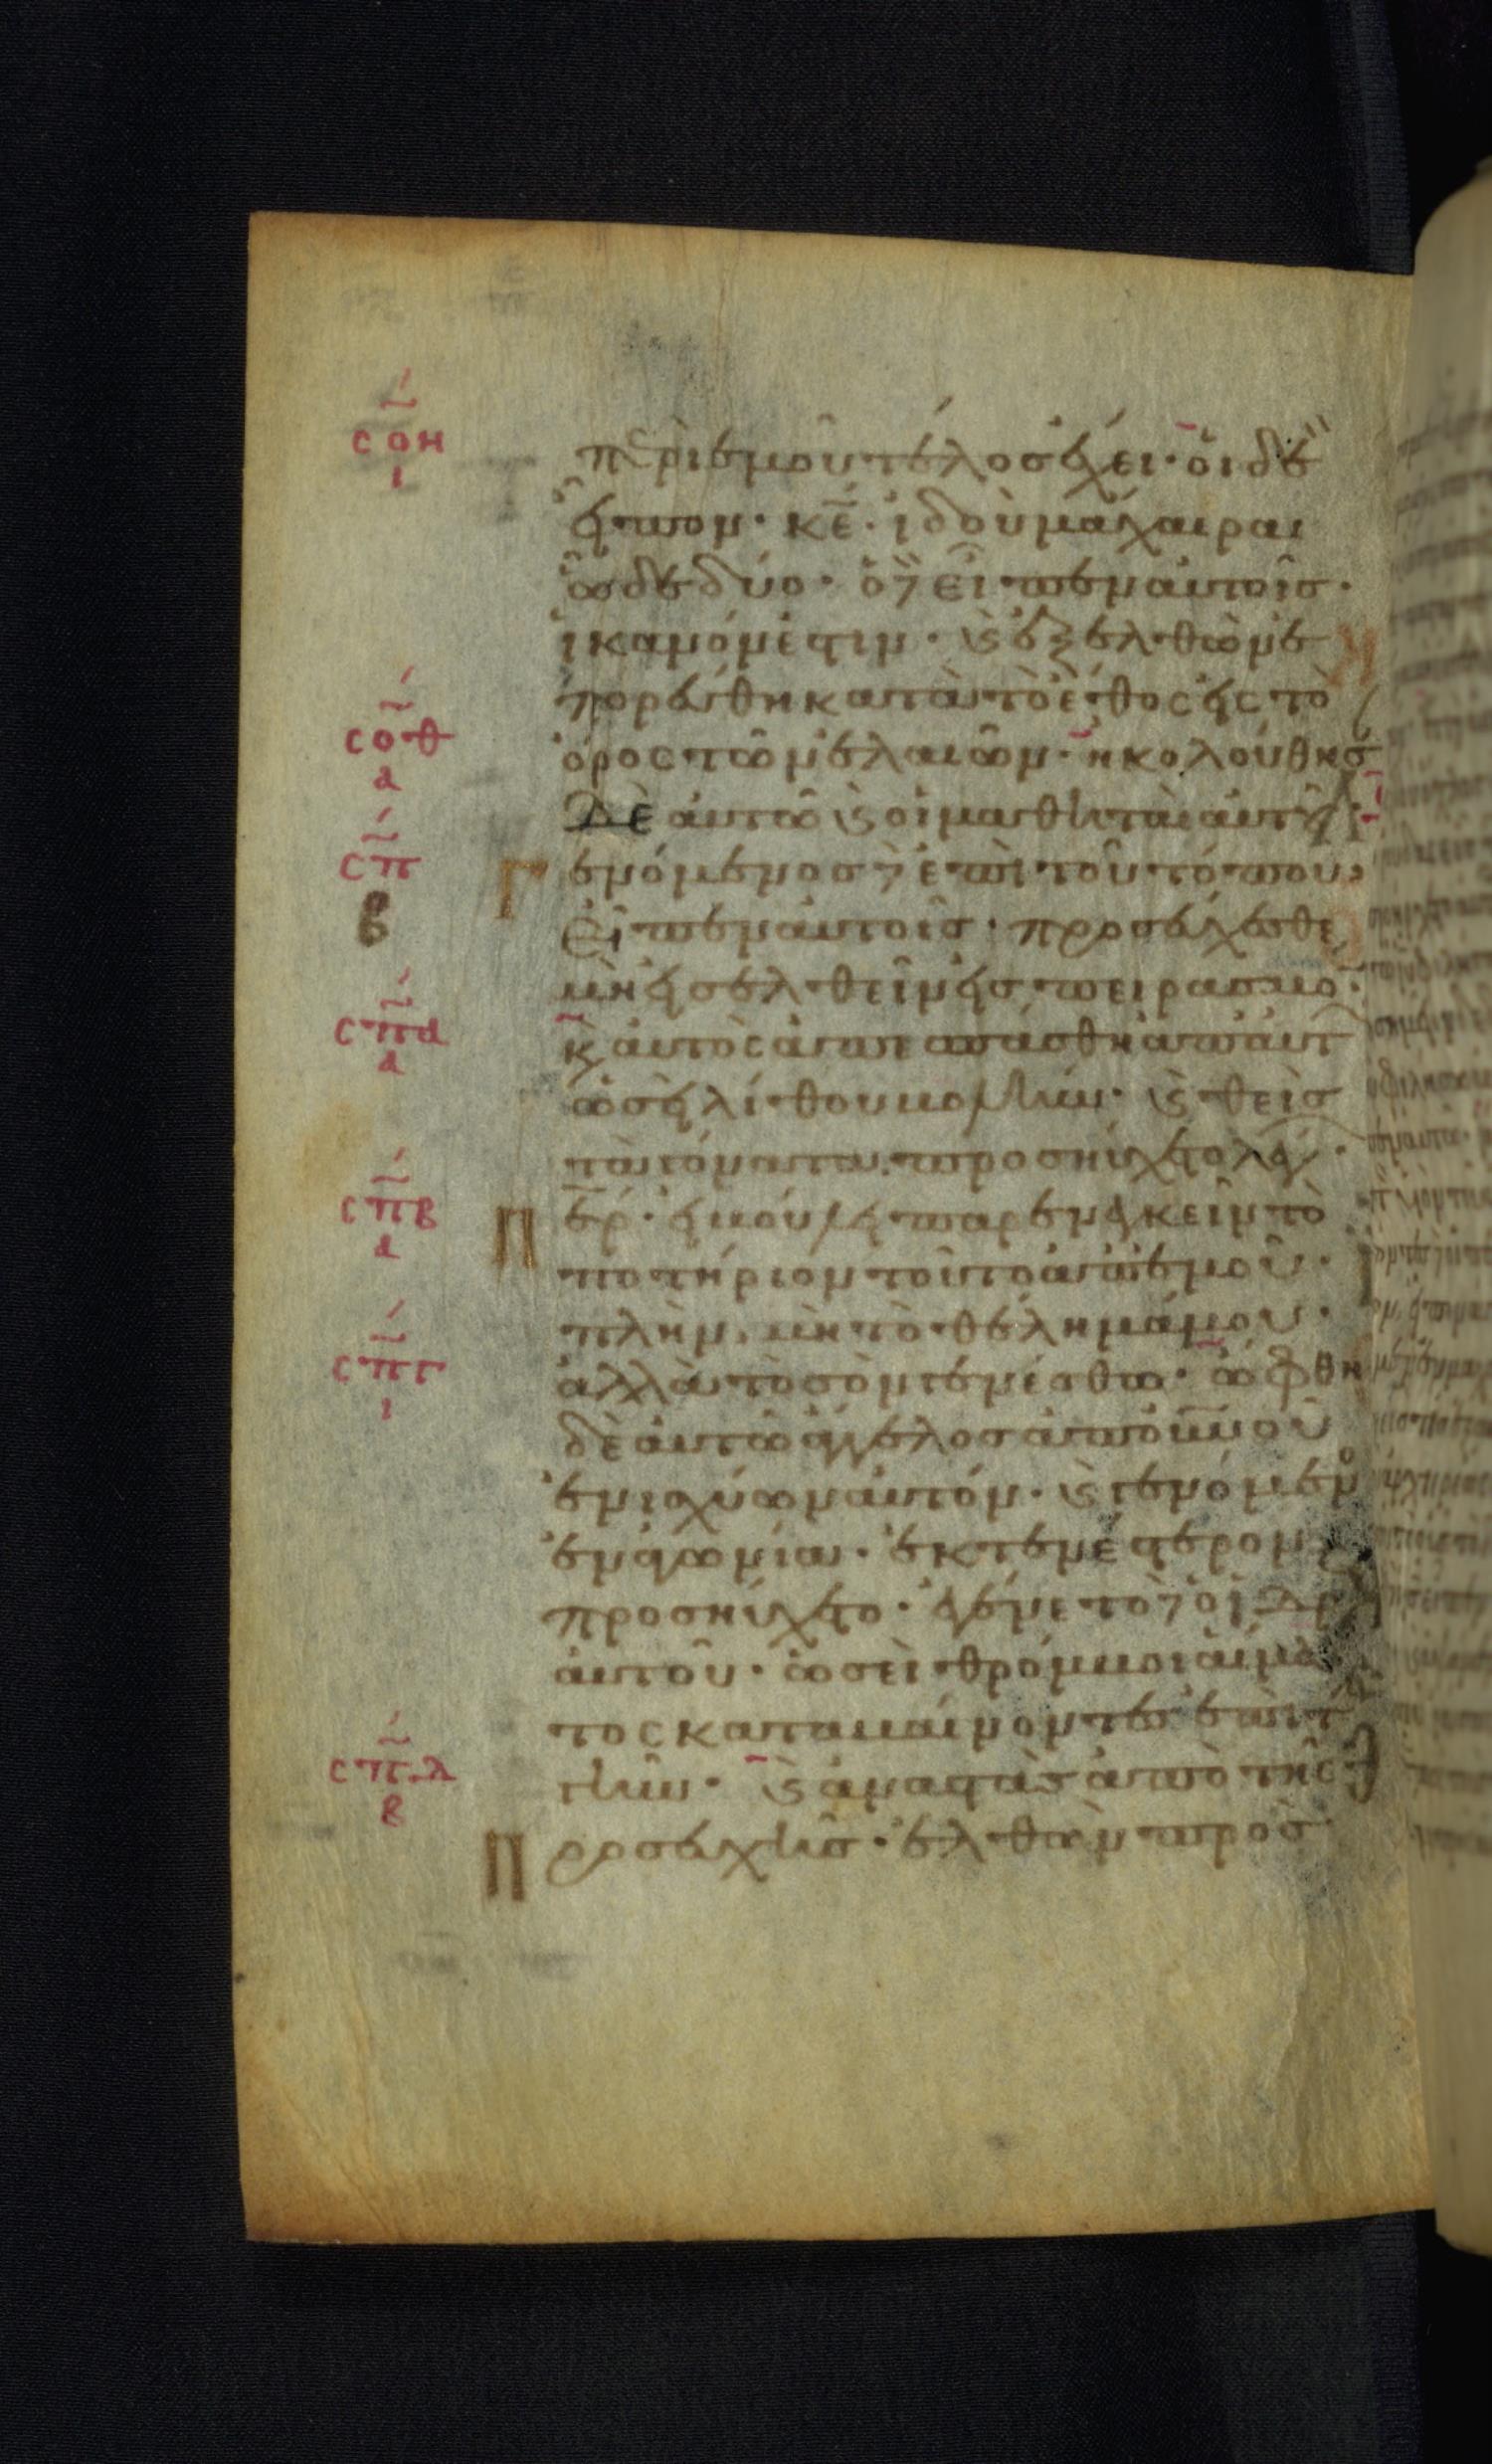 περὶ ἐμοῦ τέλος ἔχει· οἱ δὲ
εἶπον· κε̄· ἰδοὺ μάχαιραι
ὧδε δύο· ὁ δὲ εἶπεν αὐτοῖς·
ἱκανόν ἐστιν· καὶ ἐξελθὼν ἐ
πορεύθη κατὰ τὸ ἔθος εἰς τὸ
ὄρος τῶν ἐλαιῶν· ἠκολούθησ
δὲ αὐτῶ καὶ οἱ μαθηταὶ αὐτοῦ·
Γ ενόμενος δὲ ἐπὶ τοῦ τόπου·
εἶπεν αὐτοῖς· προσεύχεσθε
μὴ εἰσελθεῖν εἰς πειρασμό·
κ αὐτὸς ἀπεσπάσθη ἀπ αὐτ
ὡσεὶ λίθου βολήν· καὶ θεὶς
τὰ γόνατα προσηύχετο λέγ·
Π ερ· εἰ βούλει παρενεγκεῖν τὸ
ποτήριον τοῦτο ἀπ ἐμοῦ·
πλὴν μὴ τὸ θέλημά μου·
ἀλλὰ τὸ σὸν γενέσθω· ὤφθη
δὲ αὐτῶ ἄγγελος ἀπ οὐνοῦ
ἐνισχύων αὐτόν· καὶ γενόμενο
ἐν ἀγωνία· ἐκτενέστερον
προσηύχετο· ἐγένετο δὲ ὁ ἱδρ
αὐτοῦ· ὡσεὶ θρόμβοι αἵμα
τος καταβαίνοντες ἐπὶ τ
γῆν· καὶ ἀναστὰς ἀπὸ τῆς
Π ροσευχῆς· ἐλθὼν πρὸς
σοη
ι
σοθ
α
σπ
β
σπα
α
σπβ
α
σπγ
ι
σπδ
β